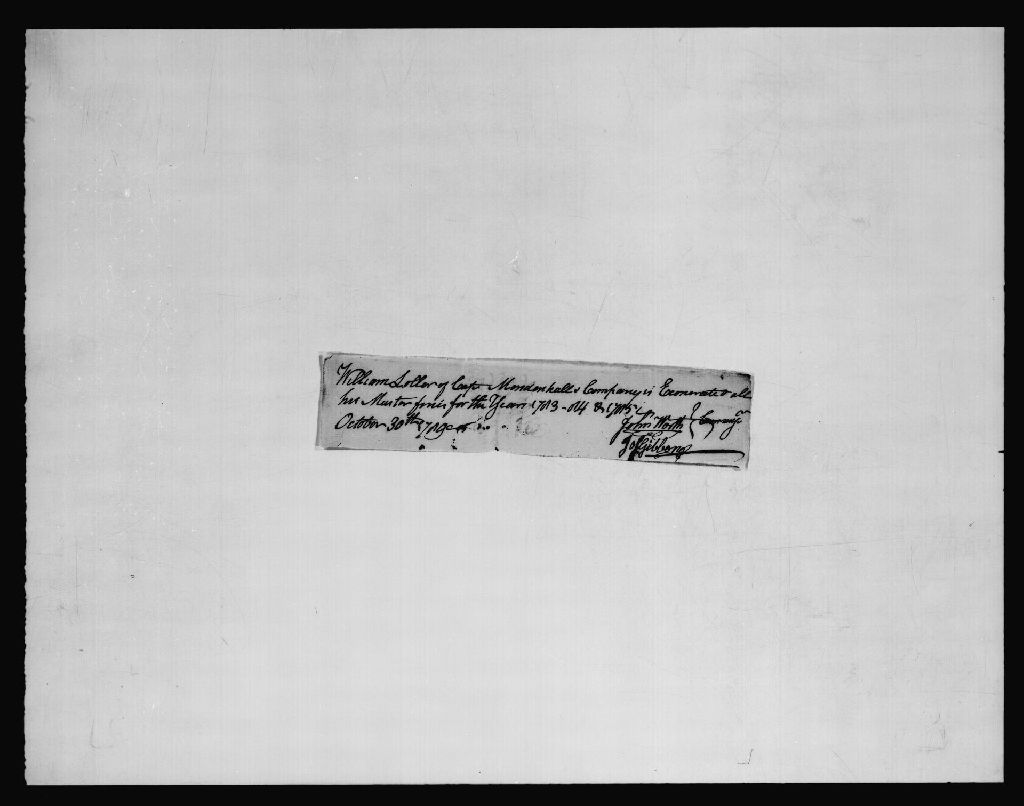 William Loller of Capt Mendenhall's Company is Exonerated all
his Muster fines for the Years 1783 - 84 & 1785
October 30th 1789
John Worth
Jos Gibbons